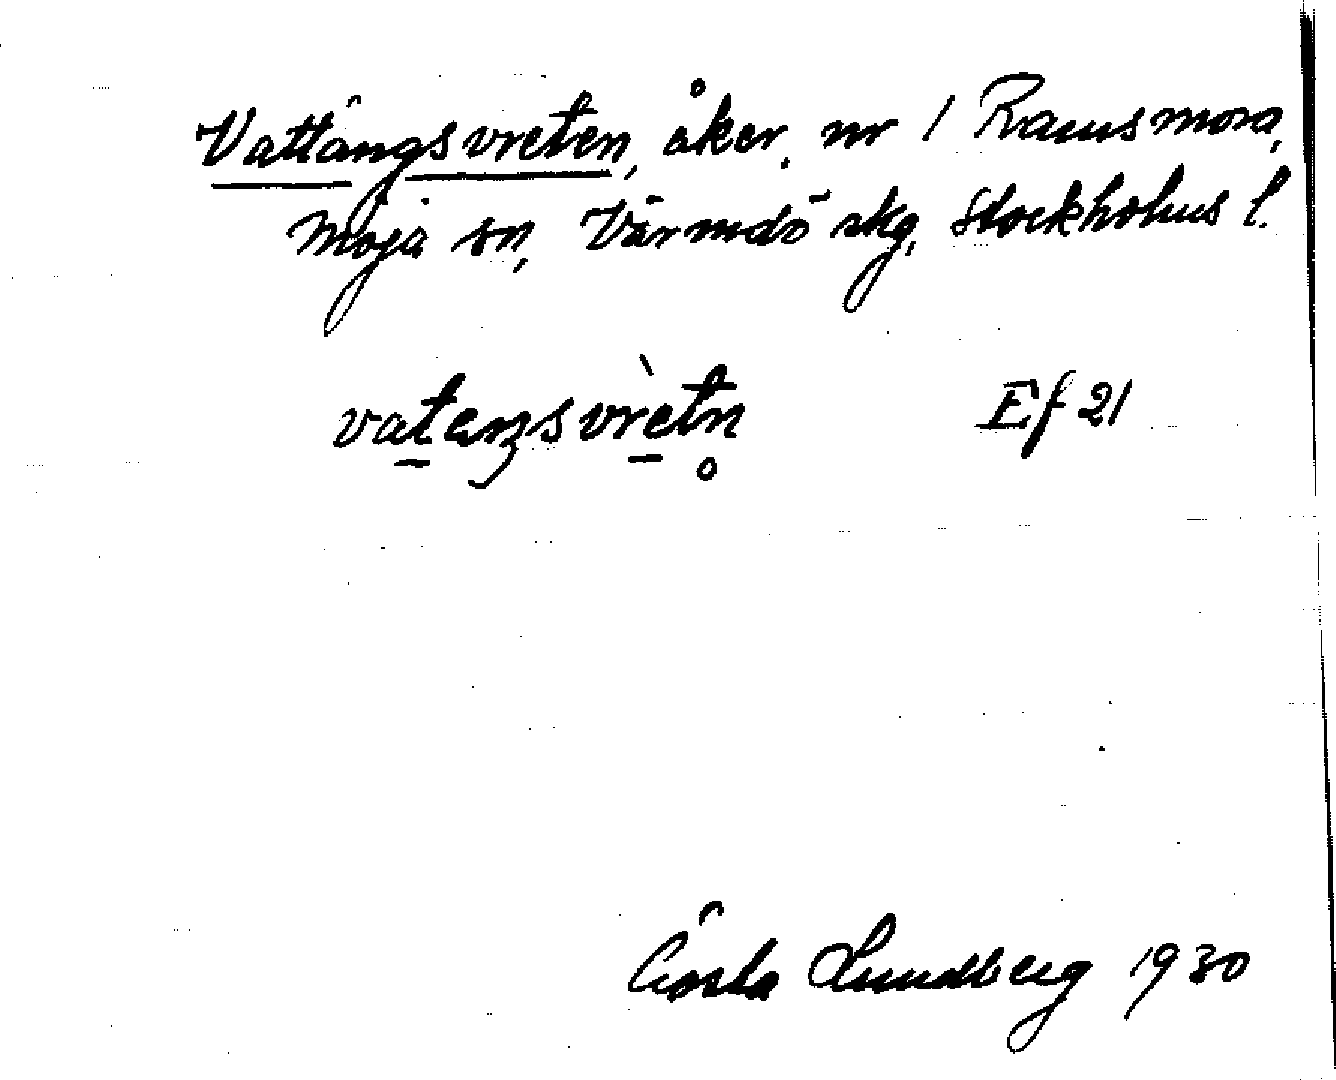 Vattängsvreten, åker, nr 1 Ramsmora,
Möja sn, Värmdö skg, Stockholms l.
vatensvretn Ef 21
Gösta Lundberg 1930